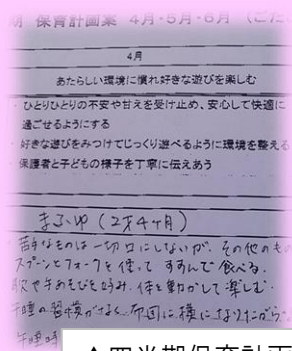 期 保育計画案 4月・5月・6月 (こだ
4月
あたらしい環境に慣れ好きな遊びを楽しむ
・ひとりひとりの不安や甘えを受け止め、安心して快適に
過ごせるようにする
・好きな遊びをみつけてじっくり遊べるように環境を整える
・保護者と子どもの様子を丁寧に伝えあう
まふゆ(2才4ヶ月)
・苦手なものは一切口にしないが、その他のもの
スプーンとフォークを使って すすんで食べる。
歌や手あそびを好み、体を動かして楽しむ。
午睡の習慣がなく、布団に横になりたがら
午睡時
▲四半期保育計画